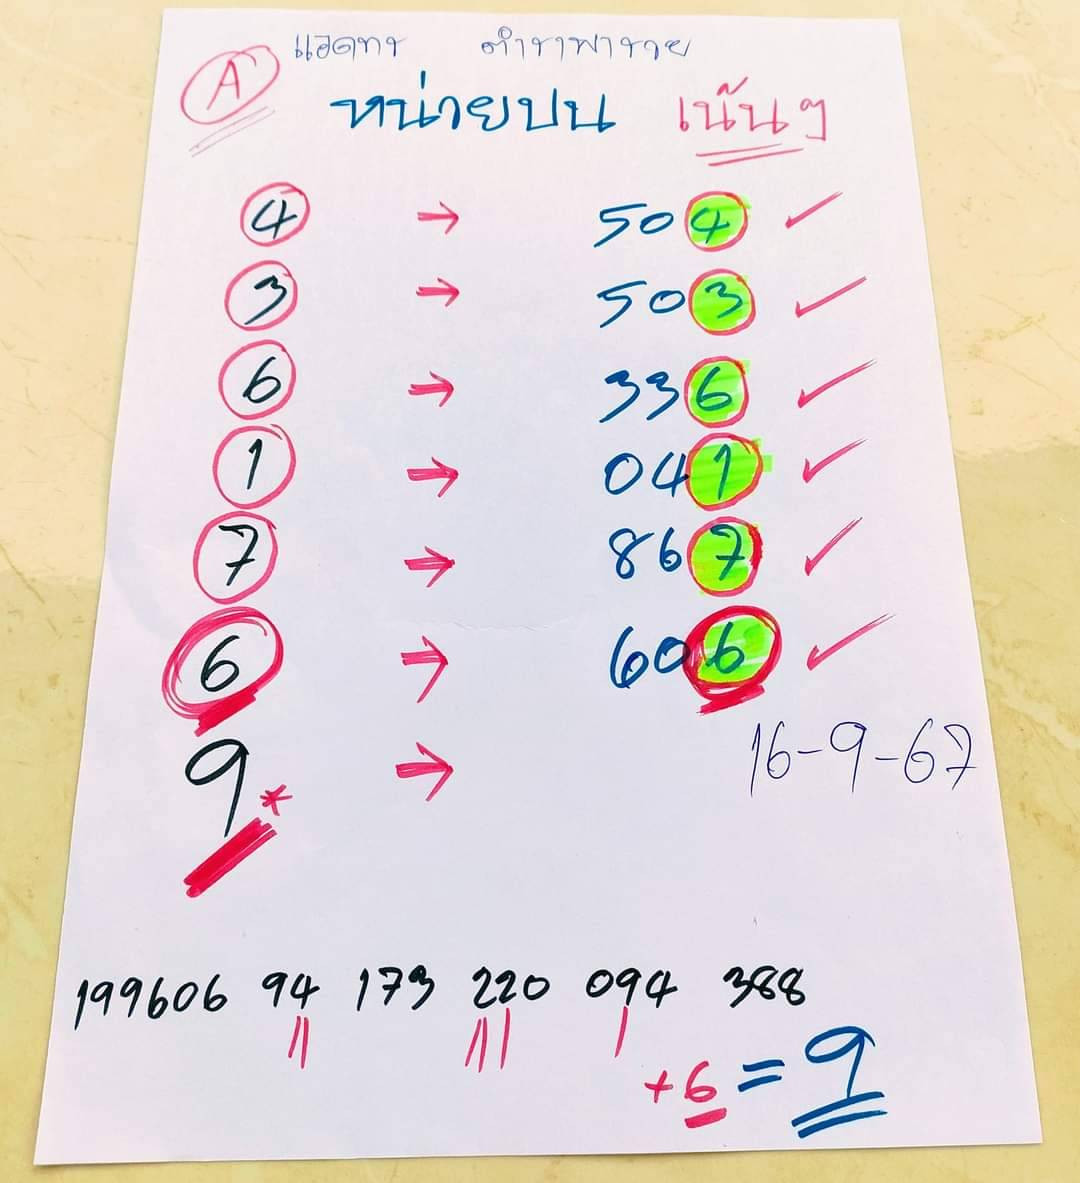 A แอดทร ตำราพารวย
หน่ายบน เน้นๆ
4 → 504 ✓
3 → 503 ✓
6 → 336 ✓
1 → 041 ✓
7 → 867 ✓
6 → 606 ✓
9* →
16-9-67
199606 94 173 220 094 388
+6=9